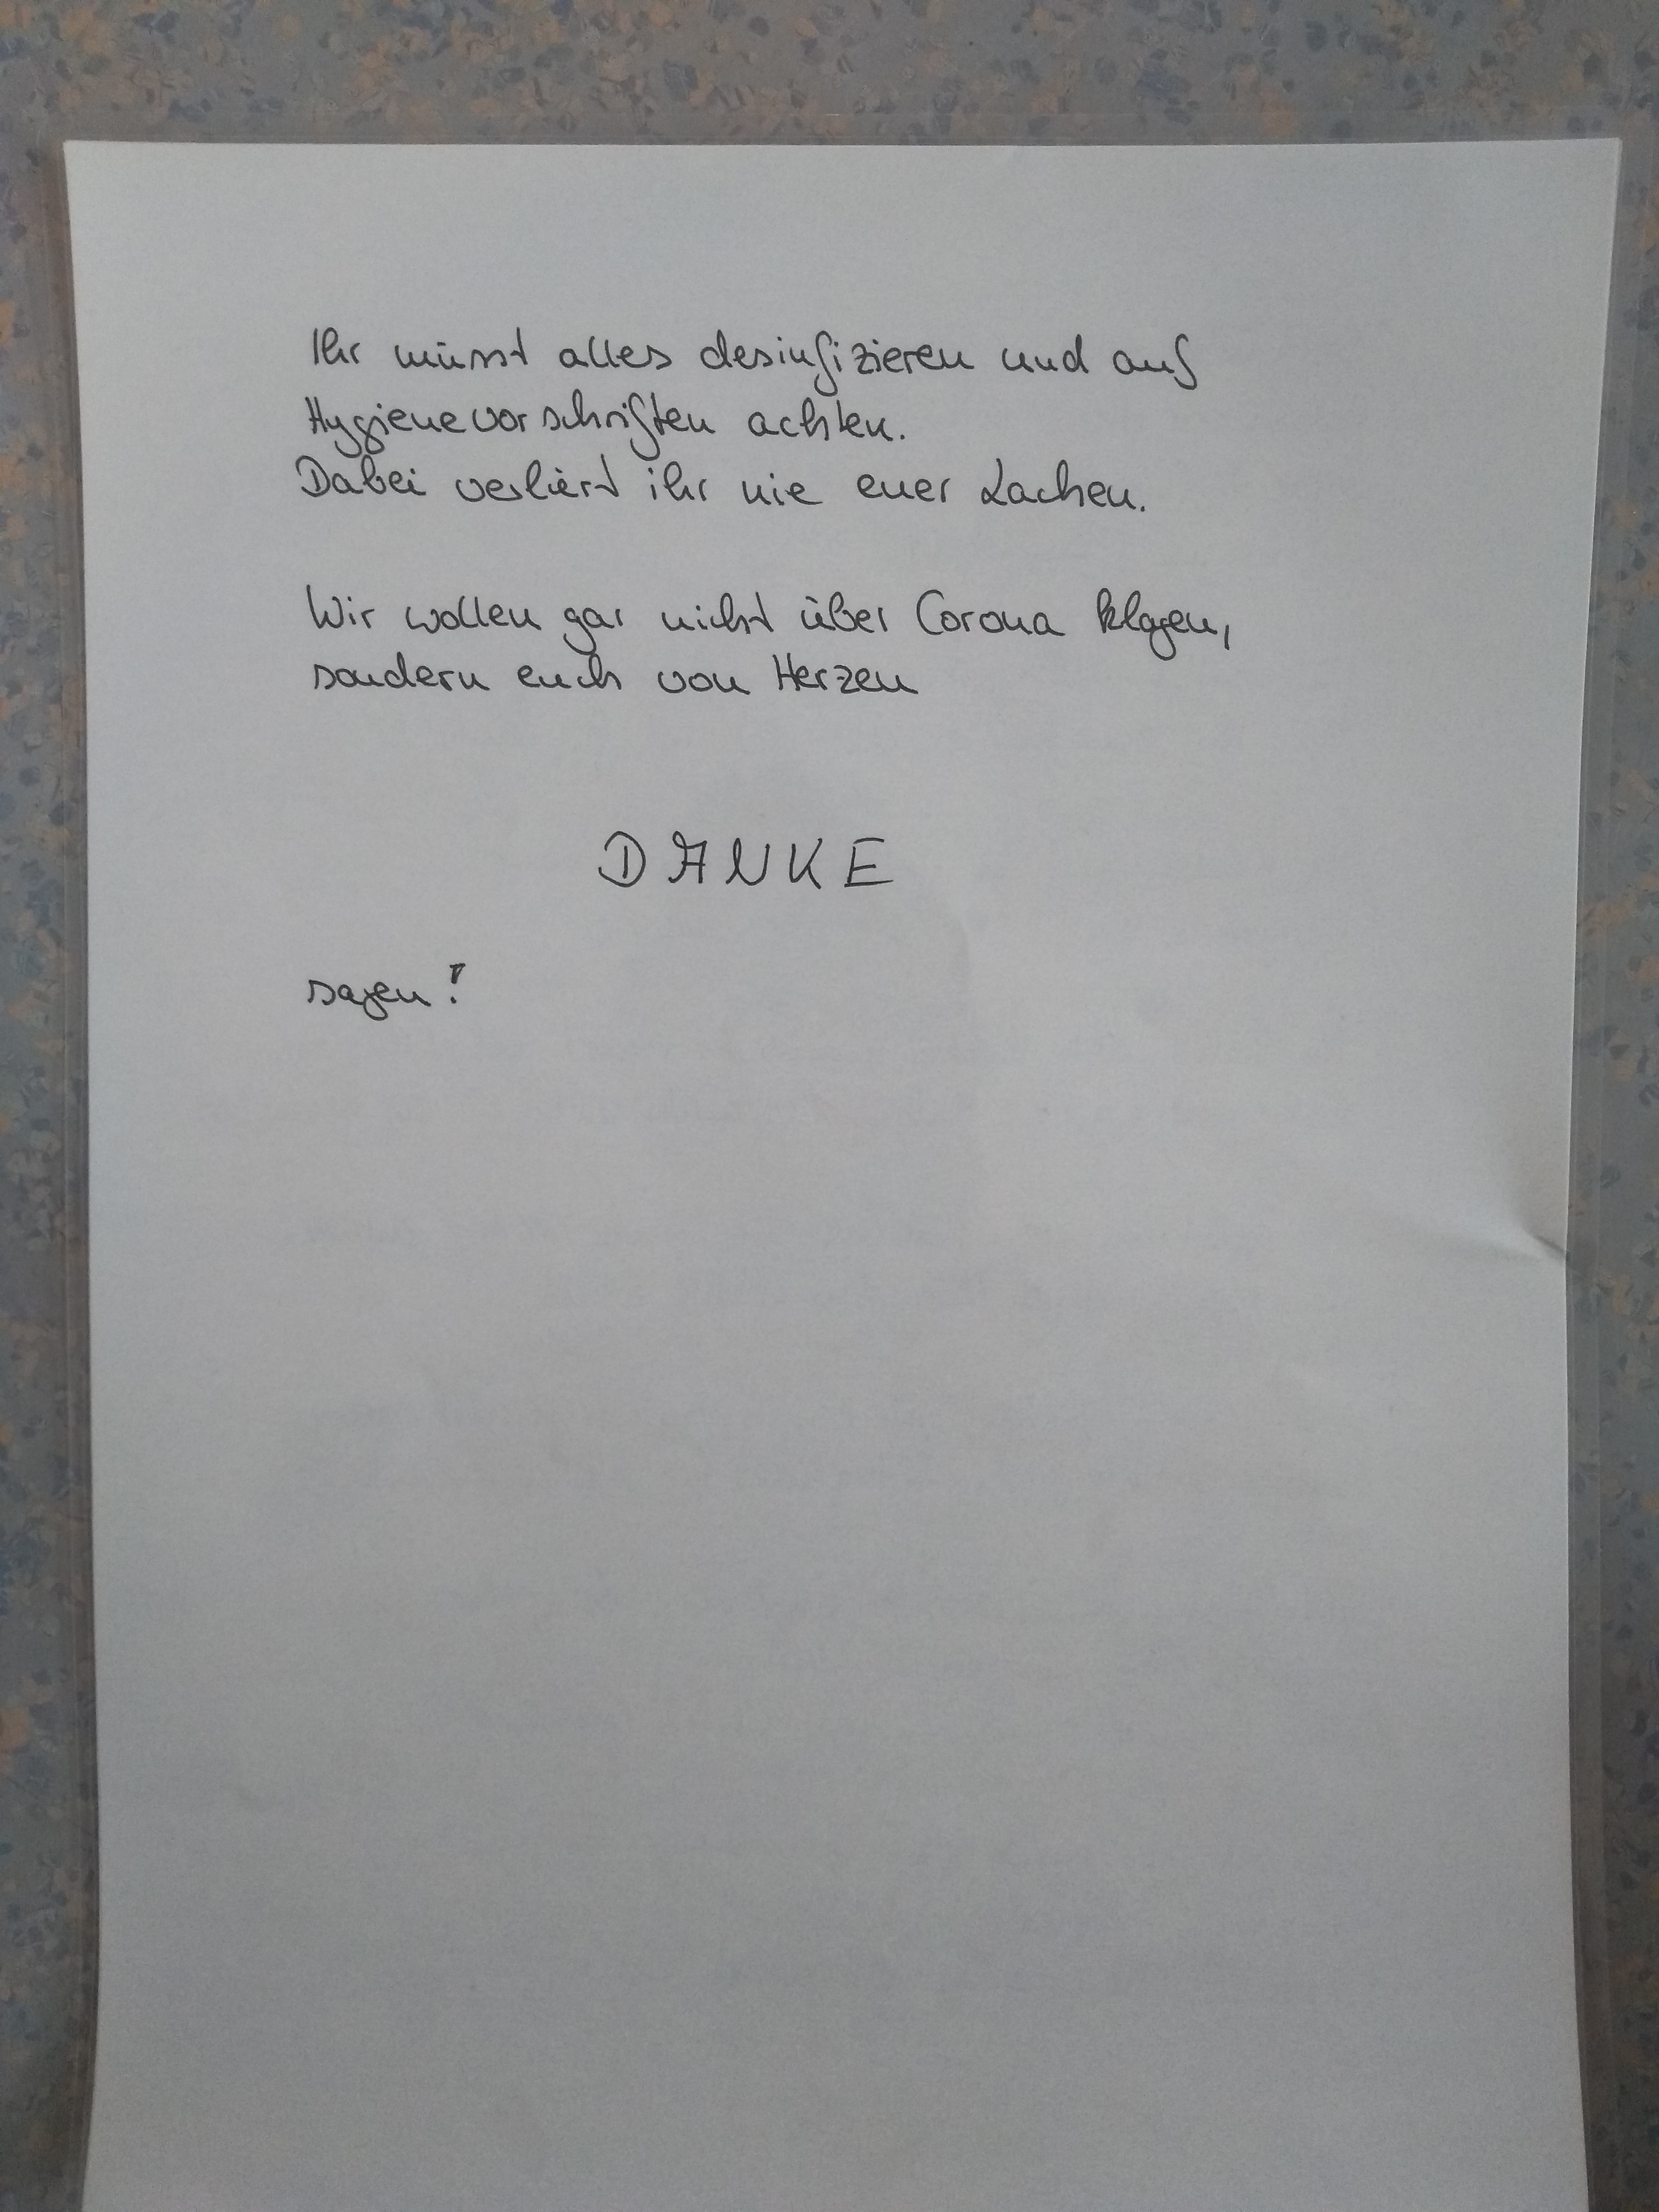 Ihr müsst alles desinfizieren und auf
Hygienevorschriften achten.
Dabei verliert ihr nie euer Lachen.
Wir wollen gar nicht über Corona klagen,
sondern euch von Herzen
DANKE
sagen!